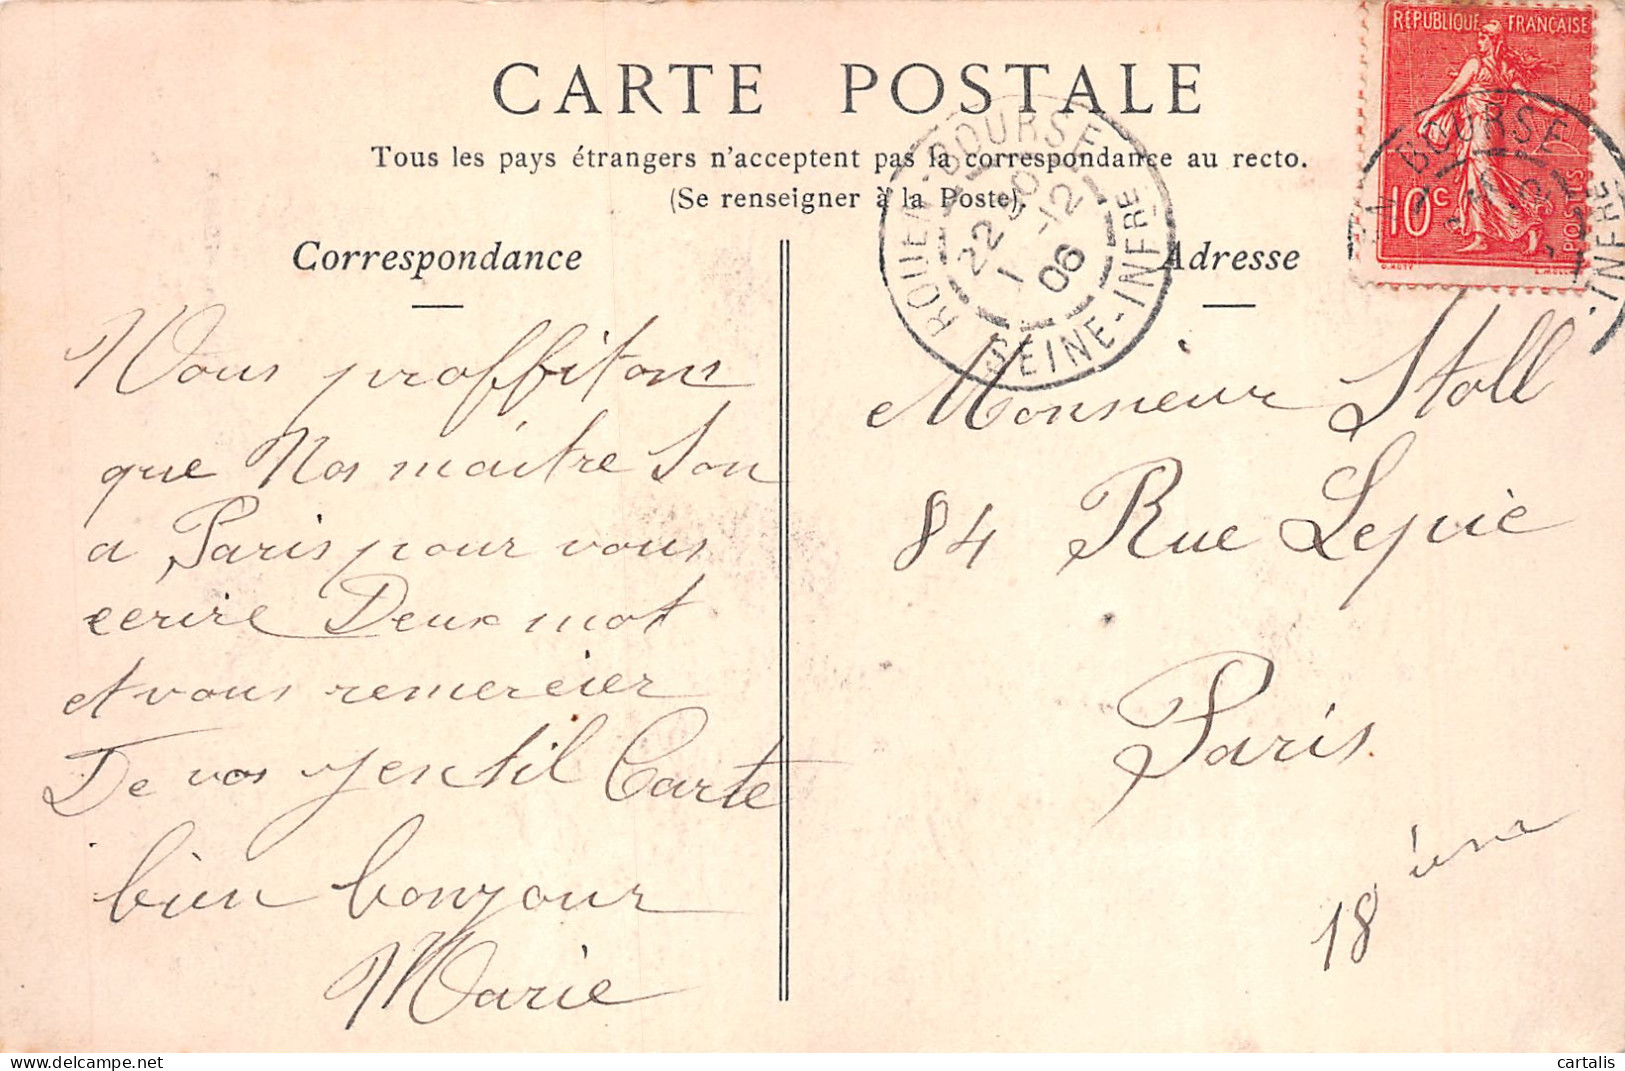 CARTE POSTALE
Tous les pays étrangers n'acceptent pas la correspondance au recto.
(Se renseigner à la Poste).
RÉPUBLIQUE FRANÇAISE
10c
POSTES
BOURSE
INFRE
ROUEN-BOURSE
22
1 -12
06
SEINE-INFRE
Correspondance
Nous proffitons
que Nos maitre Son
a Paris pour vous
ecrire Deux mot
et vous remercier
De vos gentil Carte
bien bonjour
Marie
Adresse
Monsieur Stoll
84 Rue Lepic
Paris
18 ième
cartalis